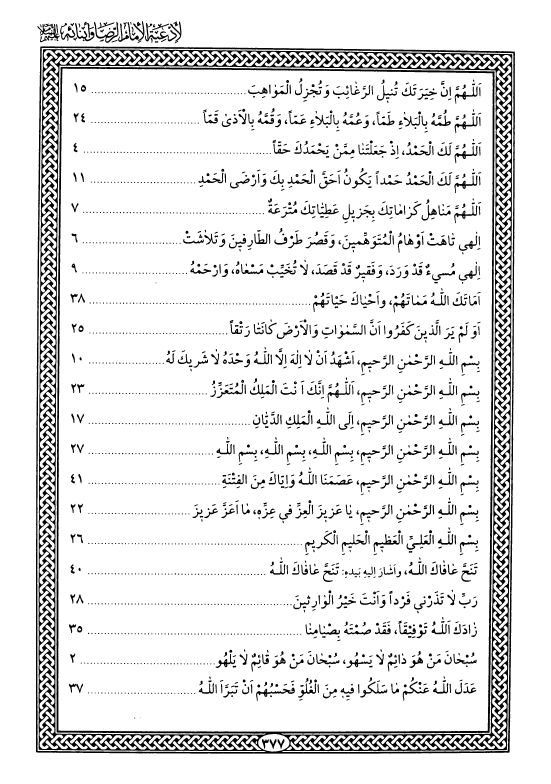 لأدعية الإمام الرضا وأبنائه
اَللّٰهُمَّ اِنَّ خِيَرَتَكَ تُنيلُ الرَّغٰائِبَ وَتُجْزِلُ الْمَوٰاهِبَ ........ ١٥
اَللّٰهُمَّ طُمَّهُ بِالْبَلاٰءِ طَمّاً، وَعُمَّهُ بِالْبَلاٰءِ عَمّاً، وَقُمَّهُ بِالْاَذىٰ قَمّاً ........ ٢٤
اَللّٰهُمَّ لَكَ الْحَمْدُ، اِذْ جَعَلْتَنٰا مِمَّنْ يَحْمَدُكَ حَقّاً ........ ٤
اَللّٰهُمَّ لَكَ الْحَمْدُ حَمْداً يَكُونُ اَحَقَّ الْحَمْدِ بِكَ وَاَرْضَى الْحَمْدِ ........ ١١
اَللّٰهُمَّ مَنٰاهِلُ كَرٰامٰاتِكَ بِجَزيلِ عَطِيّٰاتِكَ مُتْرَعَةٌ ........ ٧
اِلٰهي تٰاهَتْ اَوْهٰامُ الْمُتَوَهِّمينَ، وَقَصُرَ طَرْفُ الطّٰارِفينَ وَتَلاٰشَتْ ........ ٦
اِلٰهي مُسيءٌ قَدْ وَرَدَ، وَفَقيرٌ قَدْ قَصَدَ، لاٰ تُخَيِّبْ مَسْعٰاهُ، وَارْحَمْهُ ........ ٩
اَمٰاتَكَ اللّٰهُ مَمٰاتَهُمْ، وَاَحْيٰاكَ حَيٰاتَهُمْ ........ ٣٨
اَوَ لَمْ يَرَ الَّذينَ كَفَرُوا اَنَّ السَّمٰوٰاتِ وَالْاَرْضَ كٰانَتٰا رَتْقاً ........ ٢٥
بِسْمِ اللّٰهِ الرَّحْمٰنِ الرَّحيمِ، اَشْهَدُ اَنْ لاٰ اِلٰهَ اِلاَّ اللّٰهُ وَحْدَهُ لاٰ شَريكَ لَهُ ........ ١٠
بِسْمِ اللّٰهِ الرَّحْمٰنِ الرَّحيمِ، اَللّٰهُمَّ اِنَّكَ اَنْتَ الْمَلِكُ الْمُتَعَزِّزُ ........ ٢٣
بِسْمِ اللّٰهِ الرَّحْمٰنِ الرَّحيمِ، اِلَى اللّٰهِ الْمَلِكِ الدَّيّٰانِ ........ ١٧
بِسْمِ اللّٰهِ الرَّحْمٰنِ الرَّحيمِ، بِسْمِ اللّٰهِ، بِسْمِ اللّٰهِ، بِسْمِ اللّٰهِ ........ ٢٧
بِسْمِ اللّٰهِ الرَّحْمٰنِ الرَّحيمِ، عَصَمَنَا اللّٰهُ وَاِيّٰاكَ مِنَ الْفِتْنَةِ ........ ٤١
بِسْمِ اللّٰهِ الرَّحْمٰنِ الرَّحيمِ، يٰا عَزيزَ الْعِزِّ في عِزِّهِ، مٰا اَعَزَّ عَزيزَ ........ ٢٢
بِسْمِ اللّٰهِ الْعَلِيِّ الْعَظيمِ الْحَليمِ الْكَريمِ ........ ٢٦
تَنَحَّ عٰافٰاكَ اللّٰهُ، وأشار إليه بيده: تَنَحَّ عٰافٰاكَ اللّٰهُ ........ ٤٠
رَبِّ لاٰ تَذَرْني فَرْداً وَاَنْتَ خَيْرُ الْوٰارِثينَ ........ ٢٨
زٰادَكَ اللّٰهُ تَوْفيقاً، فَقَدْ صُمْتَهُ بِصِيٰامِنٰا ........ ٣٥
سُبْحٰانَ مَنْ هُوَ دٰائِمٌ لاٰ يَسْهُو، سُبْحٰانَ مَنْ هُوَ قٰائِمٌ لاٰ يَلْهُو ........ ٢
عَدَلَ اللّٰهُ عَنْكُمْ مٰا سَلَكُوا فيهِ مِنَ الْغُلُوِّ فَحَسْبُهُمْ اَنْ تَبَرَّأَ اللّٰهُ ........ ٣٧
٣٧٧